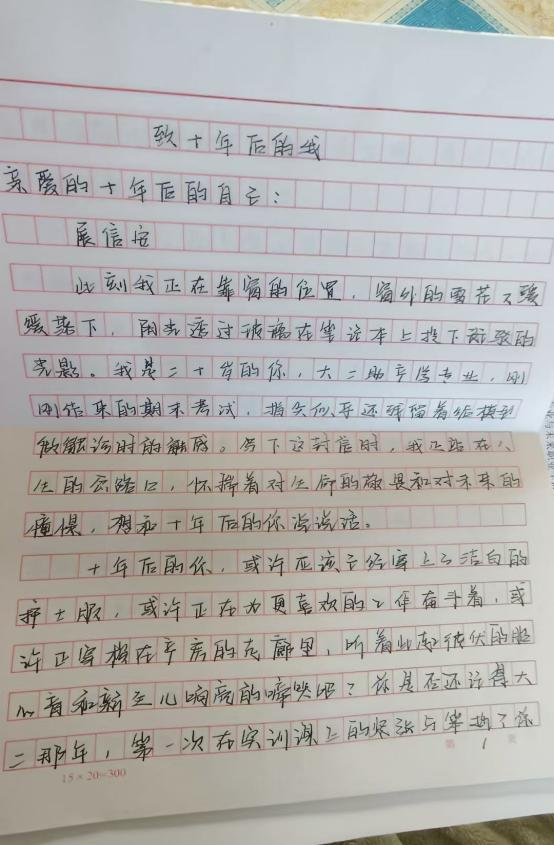 致十年后的我
亲爱的十年后的自己：
展信安
此刻我正在靠窗的位置，窗外的雪花正缓
缓落下，阳光透过玻璃在笔记本上投下斑驳的
光影。我是二十岁的你，大二助产学专业，刚
刚结束的期末考试，指尖似乎还残留着给模型
做触诊时的触感。写下这封信时，我正站在人
生的岔路口，怀揣着对生命的敬畏和对未来的
憧憬，想和十年后的你说说话。
十年后的你，或许应该已经穿上了洁白的
护士服，或许正在为更喜欢的工作奋斗着，或
许正穿梭在产房的走廊里，听着此起彼伏的胎
心音和新生儿响亮的啼哭吧？你是否还记得大
二那年，第一次在实训课上的紧张与笨拙？你
第 1 页
15×20=300